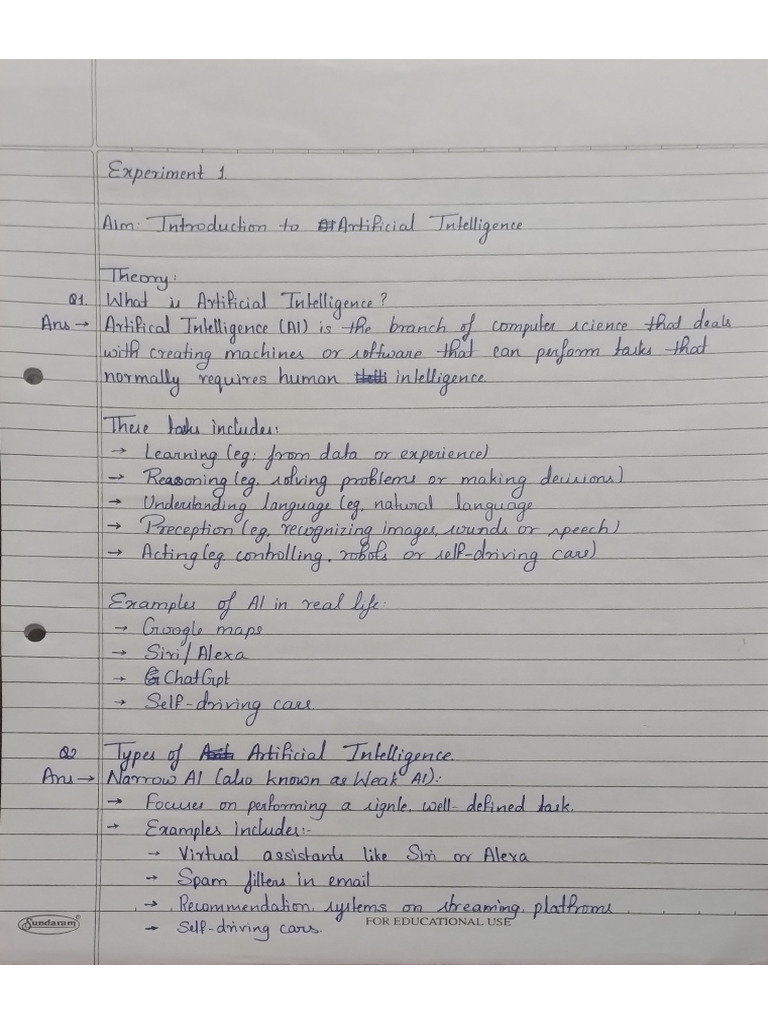 Experiment 1.
Aim: Introduction to Artificial Intelligence
Theory:
Q1. What is Artificial Intelligence?
Ans → Artifical Intelligence (AI) is the branch of computer science that deals
with creating machines or software that can perform tasks that
normally requires human intelligence.
These tasks includes:
→ Learning (eg: from data or experience)
→ Reasoning (eg, solving problems or making decisions)
→ Understanding language (eg, natural language
→ Preception (eg, recognizing images, sounds or speech)
→ Acting (eg. controlling, robots or self-driving cars)
Examples of AI in real life:
→ Google maps
→ Siri / Alexa
→ ChatGpt
→ Self-driving cars.
Q2 Types of Artificial Intelligence.
Ans → Narrow AI (also known as Weak AI):
→ Focuses on performing a signle, well-defined task.
→ Examples includes:-
→ Virtual assistants like Siri or Alexa
→ Spam filters in email
→ Recommendation systems on streaming platfroms
→ Self-driving cars.
Sundaram FOR EDUCATIONAL USE